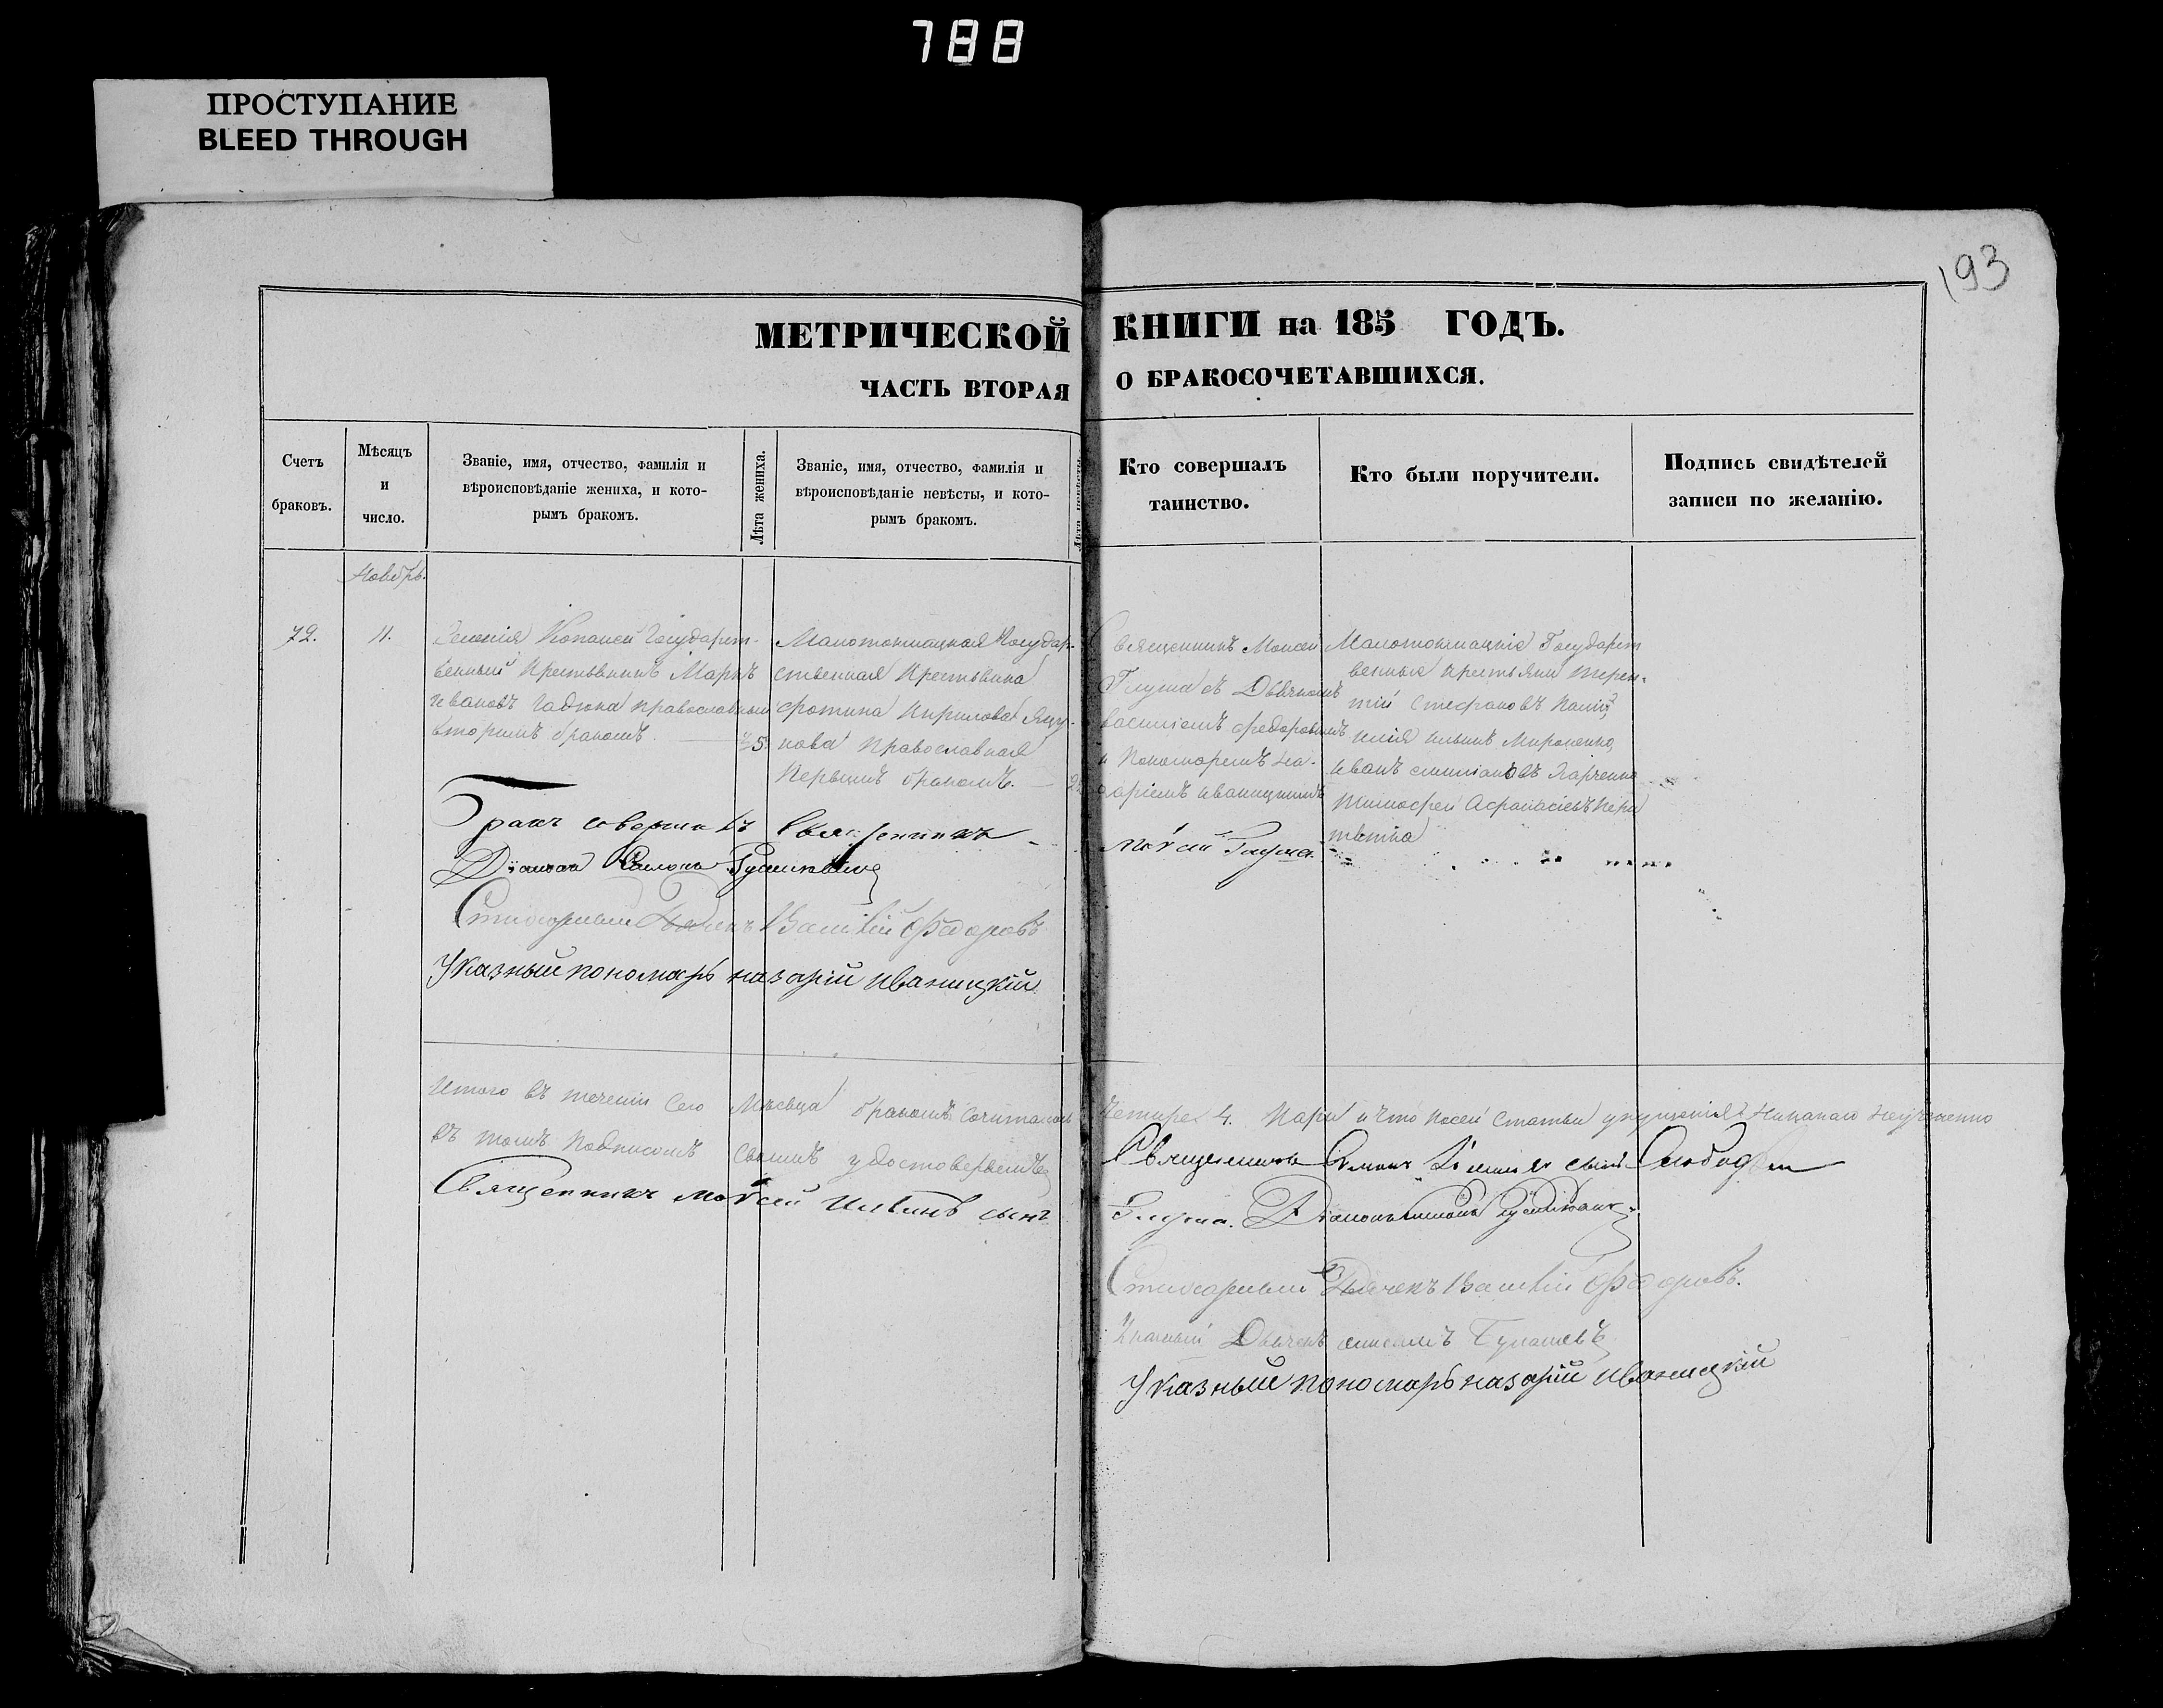 788
ПРОСТУПАНИЕ
BLEED THROUGH
193
МЕТРИЧЕСКОЙ КНИГИ на 185 ГОДЪ.
ЧАСТЬ ВТОРАЯ О БРАКОСОЧЕТАВШИХСЯ.
Счетъ браковъ.
Мѣсяцъ и число.
Званіе, имя, отчество, фамилія и
вѣроисповѣданіе жениха, и кото-
рымъ бракомъ.
Лѣта жениха.
Званіе, имя, отчество, фамилія и
вѣроисповѣданіе невѣсты, и кото-
рымъ бракомъ.
Лѣта невѣсты.
Кто совершалъ
таинство.
Кто были поручители.
Подпись свидѣтелей
записи по желанію.
Ноябрь.
72.
11.
Копаней Государст-
венный Крестьянинъ Маркъ
Ивановъ Гадюка православный
вторымъ бракомъ.
Малотокмацкая Государ-
ственная Крестьянка
Кирилова
кова Православная
Первымъ бракомъ.
Священникъ Моисей
Глума съ Дьячкомъ
Василіемъ Федоровымъ
и Пономаремъ На-
заріемъ Иваницкимъ
Малотокмацкіе Государст
венные крестьяне Терен-
тій Стефановъ
Илія Ильинъ Мироненко,
Иванъ Харченко
Тимофей Афанасіевъ
Бракъ совершалъ Священникъ
Моѵсей Глума.
Діаконъ
Стихарный Дьячекъ Василій Федоровъ
Указный пономарь Назарій Иваницкій
Итого въ теченіи сего Мѣсяца бракомъ сочиталось Четыре 4. Пары и что по сей статьи упущенія никакого неучинено
въ томъ подписомъ своимъ удостоверяемъ
Священникъ Моѵсей Ильинъ сынъ
Глума. Діаконъ
Священникъ сынъ
Стихарный Дьячекъ Василій Федоровъ.
Дьячекъ
Указный пономарь Назарій Иваницкій